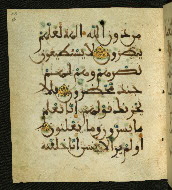 من دون الله الهة لعلهم
ينصرون لا يستطيعون
نصرهم وهم لهم
جند محضرون فلا
يحزنك قولهم انا نعلم
ما يسرون وما يعلنون
اولم ير الانسن انا خلقنه